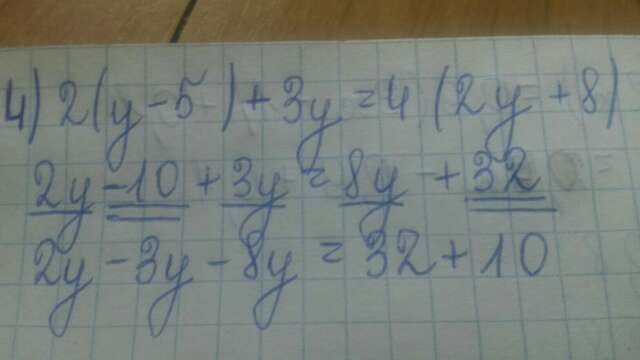 4) 2(y-5)+3y=4(2y+8)
2y-10+3y=8y+32
2y-3y-8y=32+10